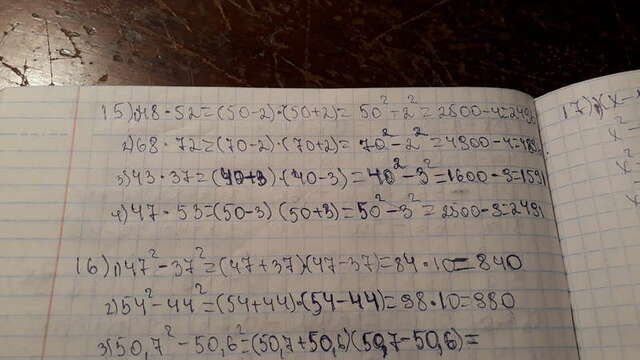 15) 1) 48 · 52 = (50-2)·(50+2) = 50² - 2² = 2500 - 4 = 2496
2) 68 · 72 = (70-2)·(70+2) = 70² - 2² = 4900 - 4 = 4896
3) 43 · 37 = (40+3)·(40-3) = 40² - 3² = 1600 - 9 = 1591
4) 47 · 53 = (50-3)(50+3) = 50² - 3² = 2500 - 9 = 2491
16) 1) 47² - 37² = (47+37)·(47-37) = 84 · 10 = 840
2) 54² - 44² = (54+44)·(54-44) = 98 · 10 = 980
3) 50,7² - 50,6² = (50,7+50,6)(50,7-50,6) =
17) 1) (x-
x²
x²
x